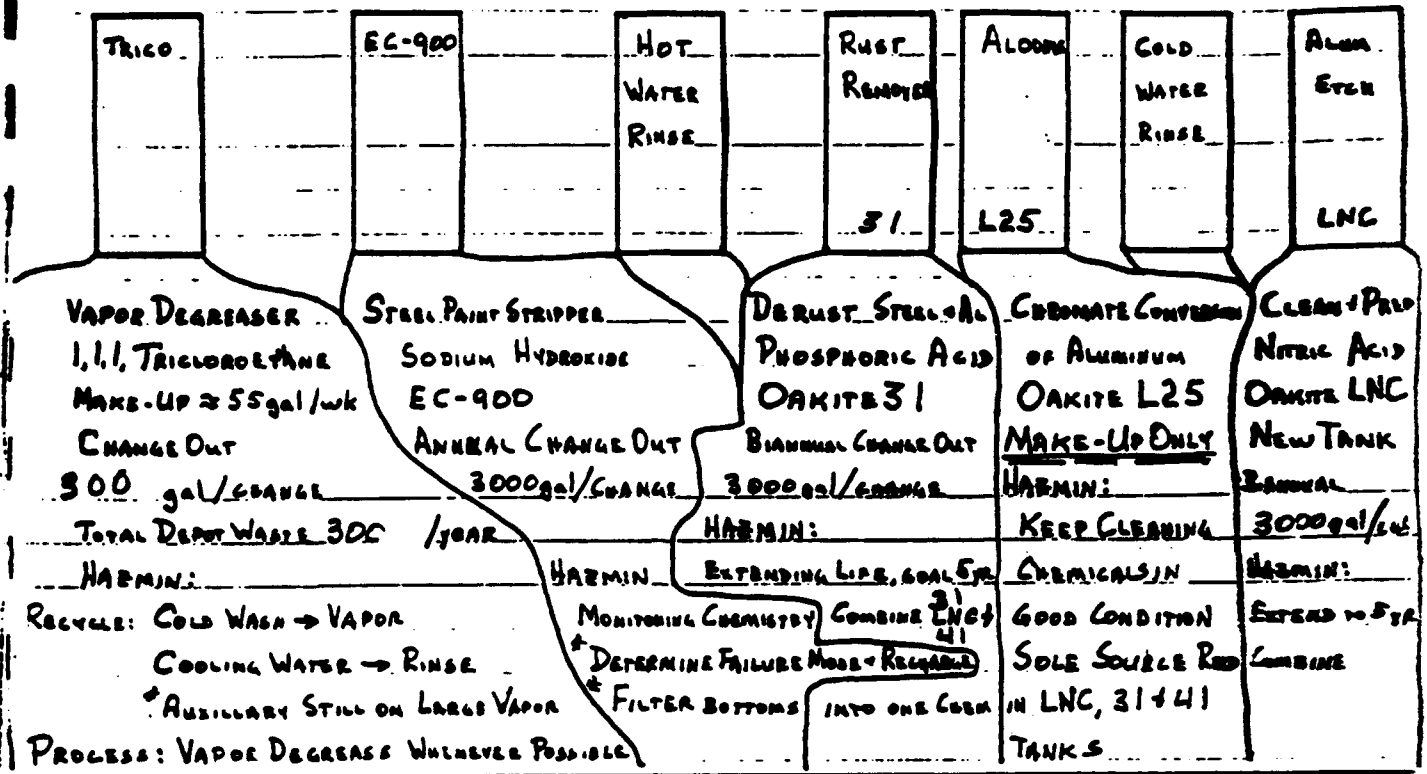 TRICO
EC-900
HOT
WATER
RINSE
RUST
REMOVER
31
ALODINE
L25
COLD
WATER
RINSE
ALUM
ETCH
LNC
VAPOR DEGREASER
1,1,1, TRICLOROETHANE
MAKE-UP ≈ 55gal/wk
CHANGE OUT
300 gal/CHANGE
TOTAL DEPOT WASTE 300 /YEAR
HAZMIN:
RECYCLE: COLD WASH → VAPOR
COOLING WATER → RINSE
*AUXILLARY STILL ON LARGE VAPOR
PROCESS: VAPOR DEGREASE WHENEVER POSSIBLE
STEEL PAINT STRIPPER
SODIUM HYDROXIDE
EC-900
ANNUAL CHANGE OUT
3000gal/CHANGE
HAZMIN
MONITORING CHEMISTRY
*DETERMINE FAILURE MODE + RECHARGE
*FILTER BOTTOMS
DERUST STEEL + AL
PHOSPHORIC ACID
OAKITE 31
BIANNUAL CHANGE OUT
3000gal/CHANGE
HAZMIN:
EXTENDING LIFE, GOAL 5YR
31
COMBINE LNC +
41
INTO ONE CHEM
CHROMATE CONVERSION
OF ALUMINUM
OAKITE L25
MAKE-UP ONLY
HAZMIN:
KEEP CLEANING
CHEMICALS IN
GOOD CONDITION
SOLE SOURCE
IN LNC, 31 + 41
TANKS
CLEAN + PREP
NITRIC ACID
OAKITE LNC
NEW TANK
BIANNUAL
3000gal/
HAZMIN:
EXTEND TO 5 YR
COMBINE